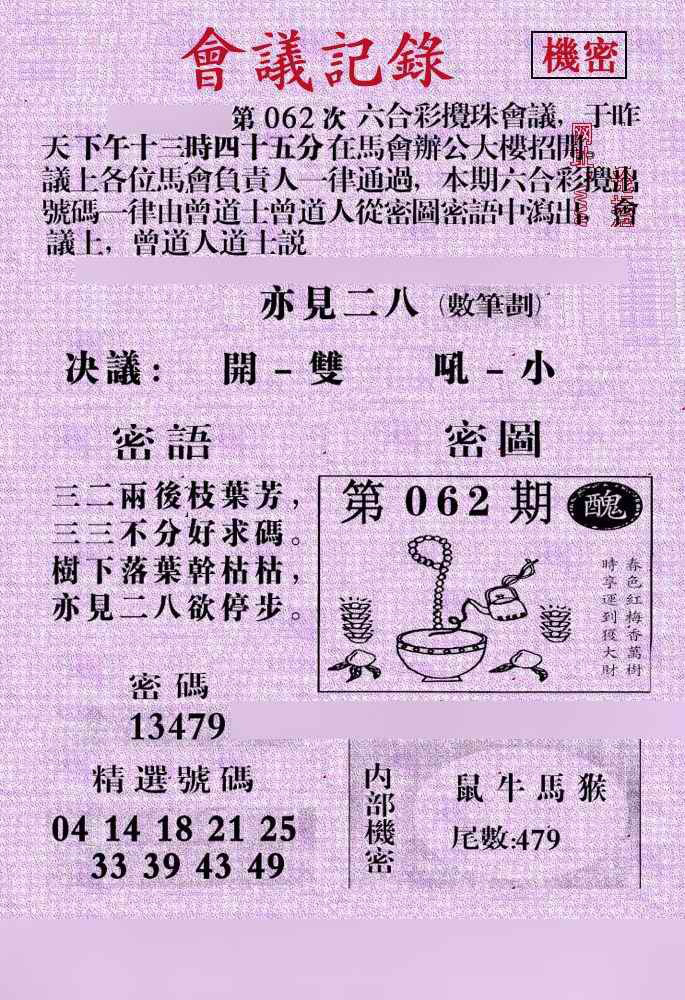 會議記錄
機密
第062次 六合彩攪珠會議，于昨
天下午十三時四十五分在馬會辦公大樓招開
議上各位馬會負責人一律通過，本期六合彩攪出
號碼一律由曾道士曾道人從密圖密語中瀉出，會
議上，曾道人道士説
亦見二八（數筆劃）
决議： 開－雙 吼－小
密語
三二兩後枝葉芳，
三三不分好求碼。
樹下落葉幹枯枯，
亦見二八欲停步。
密圖
第062期
醜
春色紅梅香萬樹
時享運到獲大財
密碼
13479
精選號碼
04 14 18 21 25
33 39 43 49
内部機密
鼠牛馬猴
尾數:479